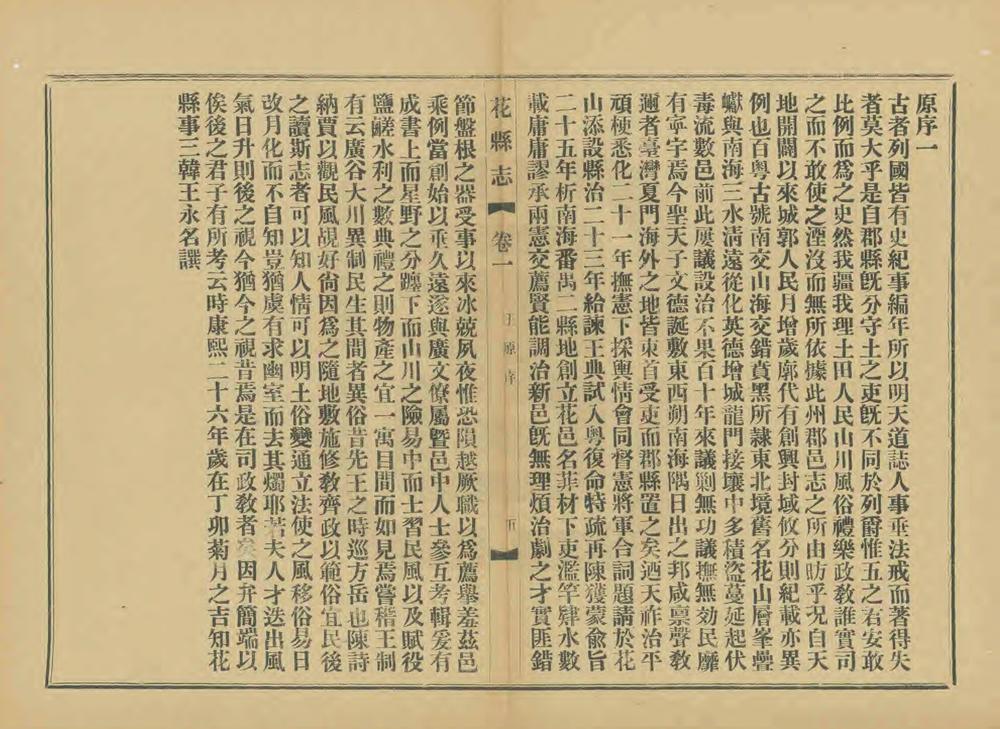 原序一
古者列國皆有史紀事編年所以明天道誌人事垂法戒而著得失
者莫大乎是自郡縣旣分守土之吏旣不同於列爵惟五之右安敢
比例而爲之史然我疆我理土田人民山川風俗禮樂政敎誰實司
之而不敢使之湮沒而無所依據此州郡邑志之所由昉乎況自天
地開闢以來城郭人民月增歲廓代有創興封域攸分則紀載亦異
例也百粤古號南交山海交錯賁黑所隸東北境舊名花山層峯疊
巘與南海三水淸遠從化英德增城龍門接壤中多積盜蔓延起伏
毒流數邑前此屢議設治不果百十年來議剿無功議撫無効民靡
有寧宇焉今聖天子文德誕敷東西朔南海隅日出之邦咸禀聲敎
邇者臺灣夏門海外之地皆東首受吏而郡縣置之矣迺天祚治平
頑梗悉化二十一年撫憲下採輿情會同督憲將軍合詞題請於花
山添設縣治二十三年給諫王典試入粤復命特疏再陳獲蒙兪旨
二十五年析南海番禺二縣地創立花邑名菲材下吏濫竽肄水數
載庸庸謬承兩憲交薦賢能調治新邑旣無理煩治劇之才實匪錯
花縣志
卷一
王原序
五
節盤根之器受事以來冰兢夙夜惟恐隕越厥職以爲薦舉羞茲邑
乘例當創始以垂久遠遂與廣文僚屬曁邑中人士參互考輯爰有
成書上而星野之分躔下而山川之險易中而士習民風以及賦役
鹽鹺水利之數典禮之則物產之宜一寓目間而如見焉嘗稽王制
有云廣谷大川異制民生其間者異俗昔先王之時巡方岳也陳詩
納賈以觀民風覘好尙因爲之隨地敷施修敎齊政以範俗宜民後
之讀斯志者可以知人情可以明土俗變通立法使之風移俗易日
改月化而不自知豈猶虞有求幽室而去其燭耶若夫人才迭出風
氣日升則後之視今猶今之視昔焉是在司政敎者矣因弁簡端以
俟後之君子有所考云時康熙二十六年歲在丁卯菊月之吉知花
縣事三韓王永名譔